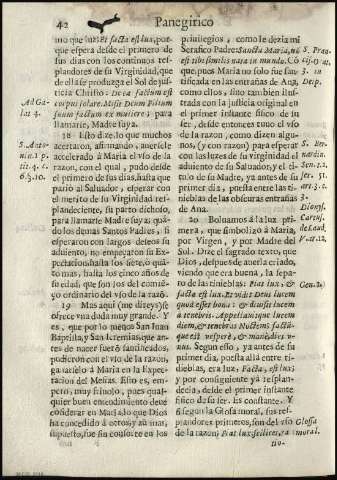 42
Panegirico
mo que luz: Et facta est lux, por-
que espera desde el primero de
sus dias con los continuos res-
plandores de su Virginidad, que
de ella se produzga el Sol de jus-
ticia Christo: De ea factum est
corpus solare. Misit Deus Filium
suum factum ex muliere: para
llamarse, Madre suya.
Ad Ga-
lat 4.
18 Esto dize, lo que muchos
acertaron, afirmando, averse le
accelerado à Maria el vso de la
razon, con el qual, pudo desde
el primero de sus dias, hasta que
pariò al Salvador, esperar con
el merito de su Virginidad res-
plandeciente, su parto dichoso,
para llamarse Madre suya; quã-
do los demas Santos Padres, si
esperaron con largos deseos su
adviento, no empezaron su Ex-
pectacion hasta los siete, ò qua-
tro, mas, hasta los cinco años de
su edad, que son los del comiẽ-
ço ordinario del vso de la razõ.
S. Anto-
nin. 1. p
tit. 4. c.
6. §. 10.
19 Mas aqui (me direys) se
ofrece vna duda muy grande. Y
es, que por lo menos San Juan
Baptista, y San Ieremias, que an-
tes de nacer fuerõ santificados,
pudieron con el vso de la razon,
igualarse à Maria en la Expecta-
cion del Mesias. Esso es, empe-
ro, muy frivolo, pues qual-
quier buen entendimiento debe
cõsiderar en Maria lo que Dios
ha concedido à otros; y aũ mas,
supuesto, fue sin consorte en los
privilegios, como le dezia mi
Serafico Padre: Sancta Maria, nõ
est tibi similis nata in mundo. Co
que, pues Maria no solo fue san-
tificada en las entrañas de Ana,
como ellos, sino tambien ilus-
trada con la justicia original en
el primer instante fisico de su
ser, desde entonces tuvo el vso
de la razon, como dizen algu-
nos, (y con razon) para esperar
con las luzes de su virginidad el
adviento de su Salvador, y el ti-
tulo de Madre suya, ya antes de
su primer dia, puesta entre las ti-
nieblas de las obscuras entrañas
de Ana.
S. Bernar-
din.
20 Bolvamos à la luz pri-
mera, que simbolizò à Maria,
por Virgen, y por Madre del
Sol. Dize el sagrado texto, que
Dios, despues de averla criado,
viendo que era buena, la sepa-
ro de las tinieblas: Fiat lux, &
facta est lux. Et vidit Deus lucem
quod esset bona: & divisit lucem
à tenebris. Appellavitque lucem
diem, & tenebras Noctem: factũ-
que est vesperè, & manè dies v-
nus. Segun esto, ya antes de su
primer dia, puesta allà entre ti-
nieblas, era luz, Facta, est lux;
y por consiguiente ya resplan-
decia, desde el primer instante
fisico de su ser. Es constante. Y
si segun la Glosa moral, sus res-
plandores primeros, son del vso
de la razon; Fiat lux, scilicet, ra-
Gen. 20
Glossa
moral.
tio-